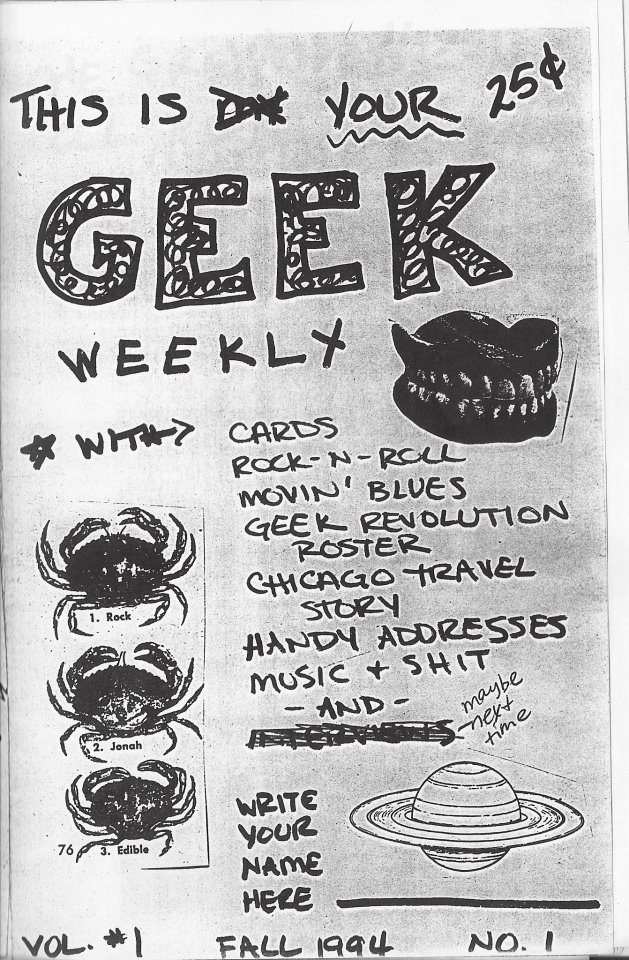 THIS IS YOUR 25¢
GEEK
WEEKLY
☆ WITH→
CARDS
ROCK-N-ROLL
MOVIN' BLUES
GEEK REVOLUTION
ROSTER
CHICAGO TRAVEL
STORY
HANDY ADDRESSES
MUSIC + SHIT
- AND -
INTERVIEWS - maybe
next
time
1. Rock
2. Jonah
76 3. Edible
WRITE
YOUR
NAME
HERE
VOL. #1 FALL 1994 NO. 1